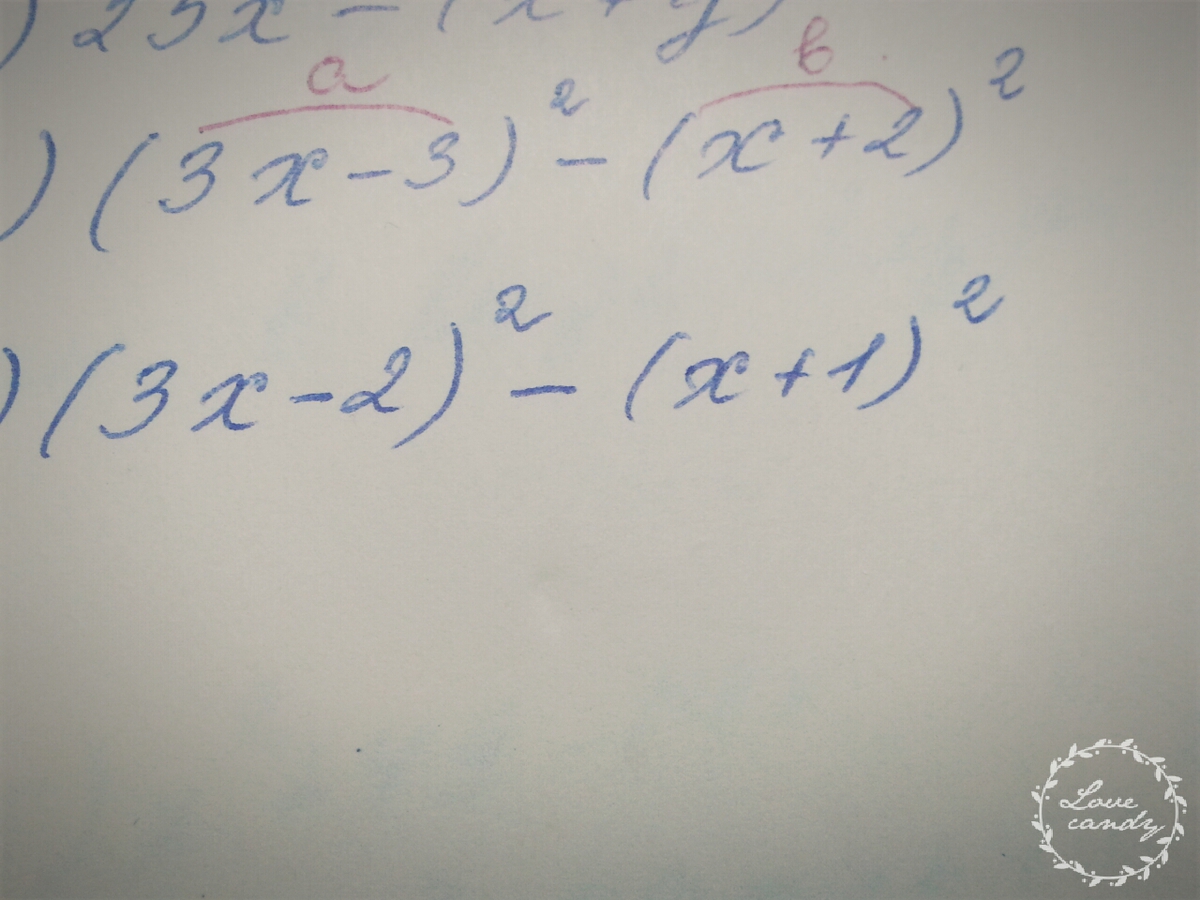 ) 25x² - (x + y)
a в
) (3x - 3)² - (x + 2)²
) (3x - 2)² - (x + 1)²
Love
candy